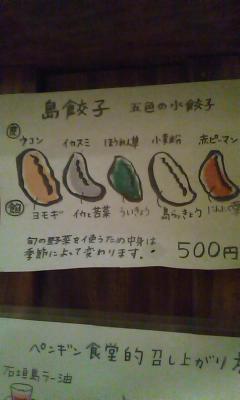 島餃子 五色の水餃子
皮 ウコン イカスミ ほうれん草 小麦粉 赤ピーマン
餡 ヨモギ イカと苦菜 ういきょう 島らっきょう にんじん
旬の野菜を使うため中身は
季節によって変わります。
500円
ペンギン食堂的召し上がり方
石垣島ラー油